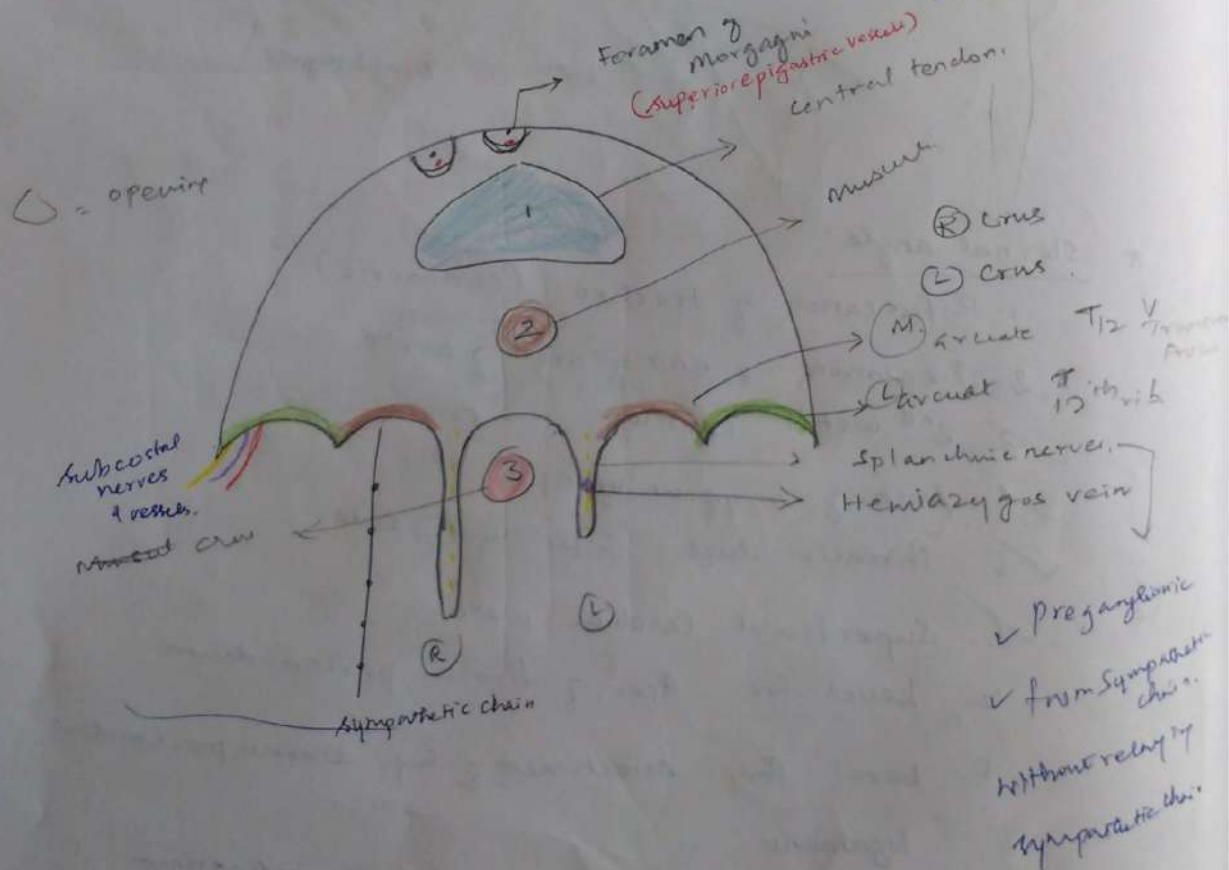 Foramen of
Morgagni
(superior epigastric vessels)
central tendon.
= opening
1
2
3
R crus
L crus.
M. arcuate T12 V
L arcuat 12th rib
Splanchnic nerves.
Hemiazygos vein
Subcostal
nerves
& vessels.
R
L
Sympathetic chain
✓ Preganglionic
✓ from Sympathetic
chain.
without relay in
sympathetic chain